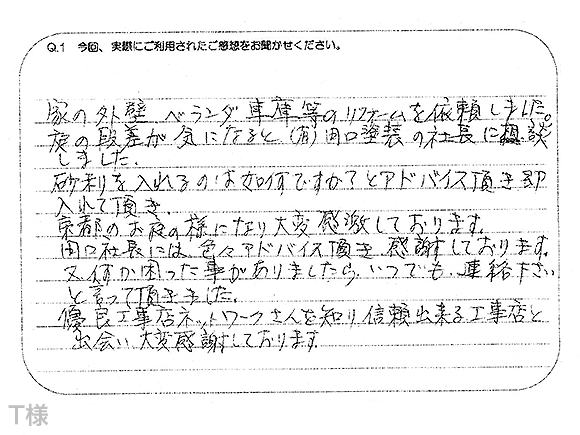 Q.1 今回、実際にご利用されたご感想をお聞かせください。
家の外壁 ベランダ 車庫等のリフォームを依頼しました。
庭の段差が気になると(有)田口塗装の社長に相談
しました.
砂利を入れるのは如何ですか?とアドバイス頂き即
入れて頂き.
京都のお庭の様になり大変感激しております.
田口社長には色々アドバイス頂き感謝しております.
又何か困った事がありましたら、いつでも、連絡下さい
と言って頂きました.
優良工事店ネットワークさんを知り信頼出来る工事店と
出会い、大変感謝しております
T様